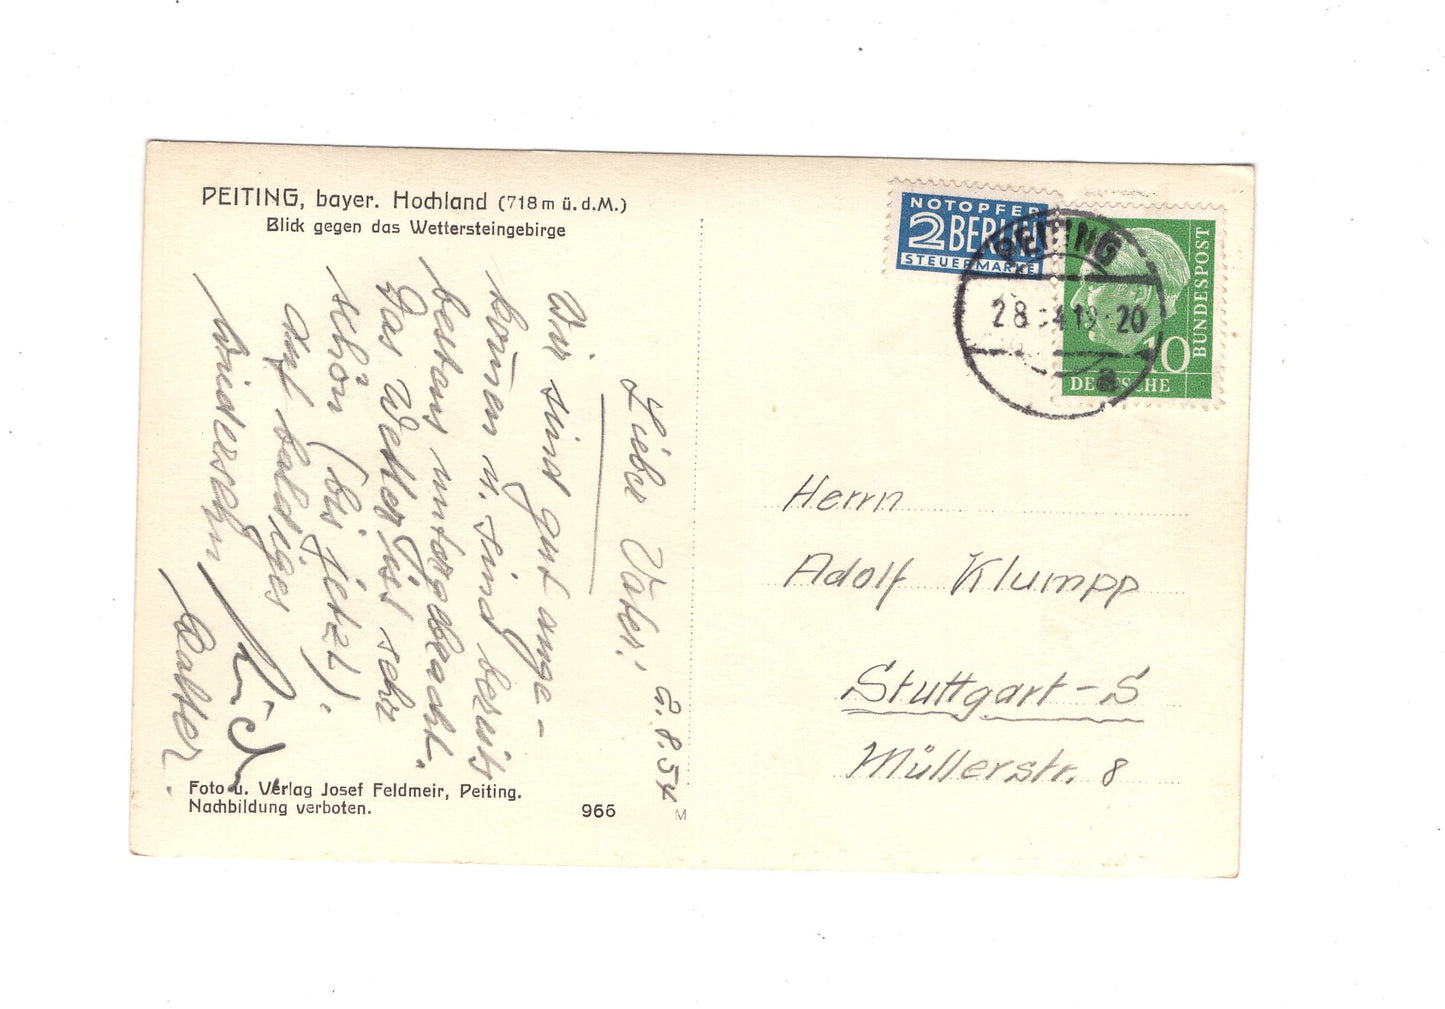 PEITING, bayer. Hochland (718 m ü.d.M.)
Blick gegen das Wettersteingebirge
2.8.54
Lieber Vater!
Wir sind gut ange-
kommen u. sind bereits
bestens untergebracht.
Das Wetter ist sehr
schön (bis jetzt).
Auf baldiges
Wiedersehn
Walter
Foto u. Verlag Josef Feldmeir, Peiting.
Nachbildung verboten.
966
M
NOTOPFER
2 BERLIN
STEUERMARKE
PEITING
28 54 19-20
a
DEUTSCHE
BUNDESPOST
10
Herrn
Adolf Klumpp
Stuttgart-S
Müllerstr. 8